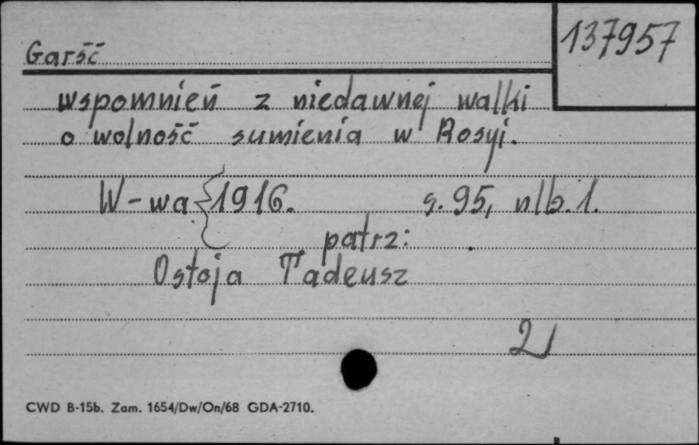 137957
Garść
wspomnień z niedawnej walki
o wolność sumienia w Rosyi.
W-wa 1916. s. 95, nlb. 1.
patrz:
Ostoja Tadeusz
2
CWD B-15b. Zam. 1654/Dw/On/68 GDA-2710.